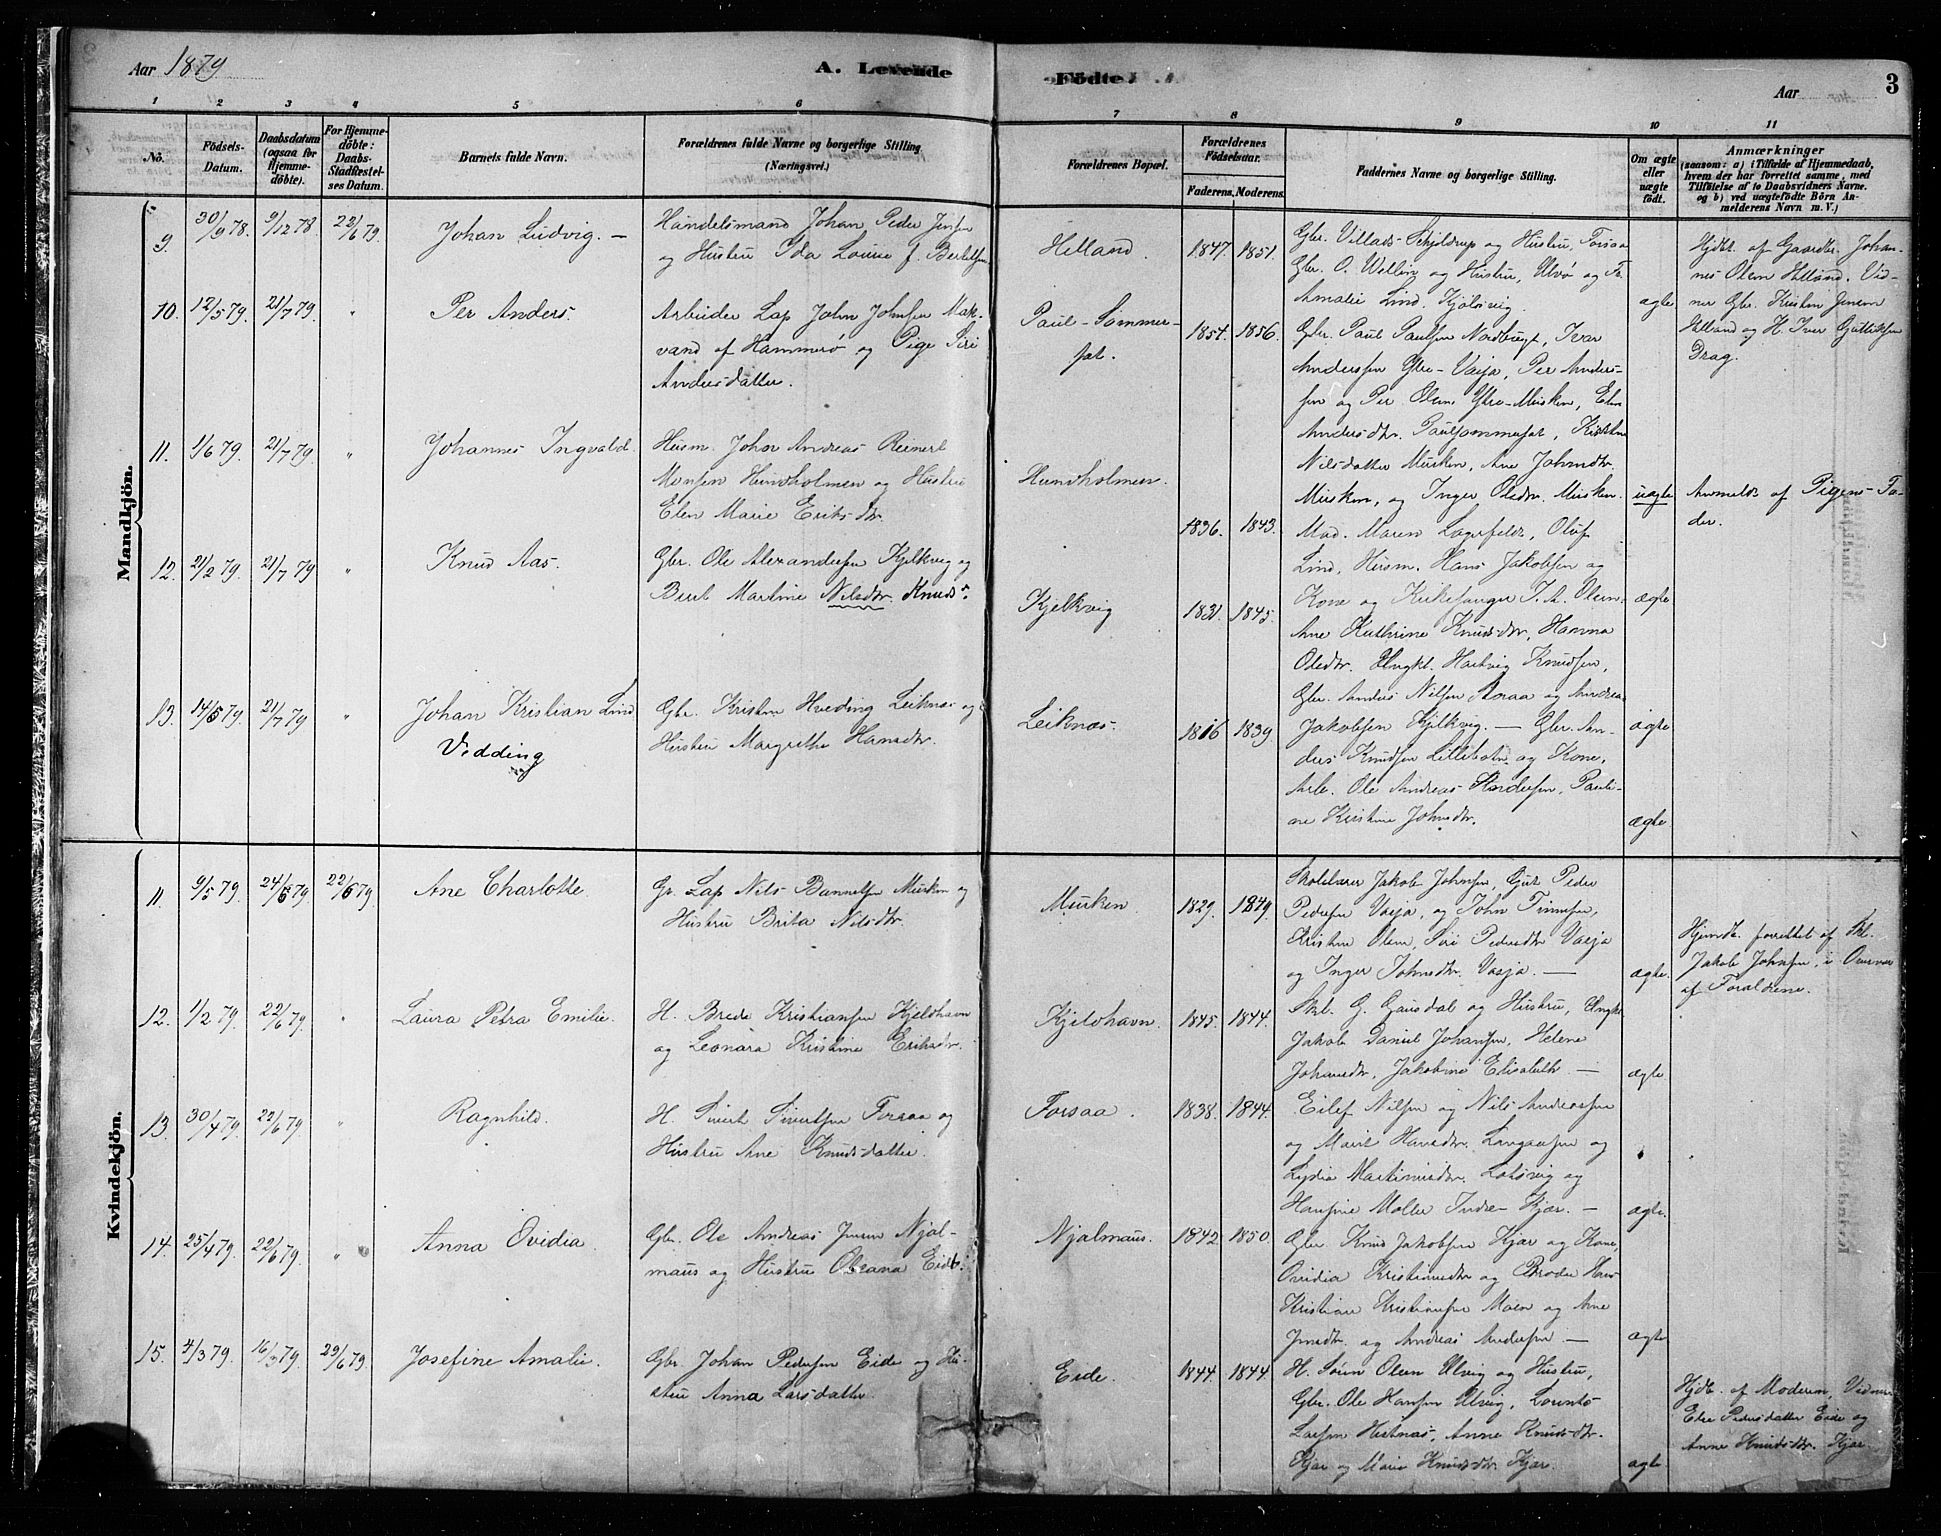 Aar 1879
A. Levende
Födte
Aar
3
1 2 3 4 5 6 7 8 9 10 11
No.
Födsels-
Datum.
Daabsdatum
(ogsaa for
Hjemme-
döbte).
For Hjemme-
döbte:
Daabs-
Stadfæstel-
ses Datum.
Barnets fulde Navn.
Forældrenes fulde Navne og borgerlige Stilling.
(Næringsvei.)
Forældrenes Bopæl.
Forældrenes
Födselsaar.
Faderens. Moderens.
Faddernes Navne og borgerlige Stilling.
Om ægte
eller
uægte
födt.
Anmærkninger
(saasom: a) i Tilfælde af Hjemmedaab,
hvem der har forrettet samme, med
Tilföielse af to Daabsvidners Navne.
og b) ved uægtefödte Börn An-
melderens Navn m. V.)
Mandkjön.
9. 30/9 78. 9/12 78 22/6 79. Johan Ludvig. —
Handelsmand Johan Peder Jensen
og Hustru Ida Louise f. Bertelsen
Helland. 1847. 1851.
Gbr. Villads Schjeldrup og Hustru, Forsaa
Gbr. O. Wellin og Hustru, Ulvø og Fr.
Amalie Lind. Kjølsvig.
ægte
Hjdbt. af Gaardbr. Johan-
nes Olsen Helland. Vid-
ner Gbr. Kristen Jensen
Helland og H. Iver
Drag.
10. 12/5 79. 21/7 79. " Per Anders.
Arbeider Lap John Johnsen Mak-
vand af Hammerø og Pige Siri
Andersdatter.
Paul-Sommer-
sæt. 1854. 1856.
Gbr. Paul Paulsen Nordbugt, Ivar
Anderssen Ytre-Vasja, Per Anders-
sen og Per Olsen Ytre-Musken, Elen
Andersdtr. Paulsommersæt, Kirsten
Nilsdatter Musken, Ane Johnsdtr.
Musken, og Inger Olsdtr. Musken.
uægte
Anmeldt af Pigens Fa-
der.
11. 1/6 79. 21/7 79. " Johannes Ingvald.
Husm. John Andreas Reinert
Monsen Hundholmen og Hustru
Elen Marie Eriksdtr.
Hundholmen. 1836. 1843.
Mad. Maren Lagerfeldt, Oluf
Lind, Husm. Hans Jakobsen og
Kone og Kirkesanger T. A. Olsen.
ægte
12. 21/2 79. 21/7 79 " Knud Aas.
Gbr. Ole Alexandersen Kjelkvig og
Berit Martine Nilsdtr. Knuds.
Kjelkvig 1831. 1845.
Ane Kathrine Knudsdtr, Hanna
Olsdtr. Ungkl. Hartvig Knudsen,
Gbr. Anders Nilsen Roraa og Andreas
Jakobsen Kjelkvig. —
ægte
13. 14/5 79. 21/7 79 " Johan Kristian Lind
Vedding
Gbr. Kristen Hveding Leiknes og
Hustru Margrethe Hansdtr.
Leiknæs. 1816 1839.
Gbr. An-
ders Knudsen Lillebotn og Kone,
Arb. Ole Andreas Andersen, Pauli-
ne Kristine Johnsdtr.
ægte
Kvindekjön.
11 9/5 79. 24/5 79. 22/6 79 Ane Charlotte.
Gr. Lap Nils Bannelsen Musken og
Hustru Brita Nilsdtr.
Musken. 1829. 1849.
Skolelærer Jakob Johnsen, Gut Peder
Pedersen Vasja, og John Finnesen,
Kristine Olsen, Siri Pedersdtr Vasja
og Inger Johnsdtr. Vasja. —
ægte.
Hjemdt. forrettet af Skl.
Jakob Johnsen, i Overvær
af Forældrene.
12. 1/2 79. 22/6 79. " Laura Petra Emilie.
H. Brede Kristiansen Kjeldhavn
og Leonara Kristine Eriksdtr.
Kjeldhavn. 1845. 1844.
Skl. G. Gausdal og Hustru, Ungk.
Jakob Daniel Johansen, Helene
Johansdtr, Jakobine Elisabeth —
ægte
13. 30/4 79. 22/6 79 " Ragnhild.
H. Sivert Sivertsen Forsaa og
Hustru Ane Knudsdatter.
Forsaa. 1838. 1844.
Eilef Nilsen og Nils Andreassen
og Marit Hansdtr. og
Lydia Martinusdtr. Lotsvig og
Hansine Moller Indre Kjær. —
ægte.
14. 25/4 79. 22/6 79. " Anna Ovidia.
Gbr. Ole Andreas Jensen Njal-
maus og Hustru Oleana Eids.
Njalmaus. 1842 1850.
Gbr. Knud Jakobsen Kjær og Kone,
Ovidia Kristiansdtr og Broder Hans
Kristian Kristiansen Moen og Ane
Jensdtr. og Andreas Andersen —
ægte
15. 4/3 79. 16/3 79. 29/6 79. Josefine Amalie.
Gbr. Johan Pedersen Eide og Hu-
stru Anna Larsdatter
Eide. 1844. 1844
H. Søren Olsen Ulvig og Hustru,
Gbr. Ole Hansen Ulvig, Lorents
Larsen Hestnæs, Anne Knudsdtr.
Kjær og Marie Knudsdtr. Kjær.
ægte.
Hjdt. af Moderen, Vidner
Else Pedersdatter Eide og
Anne Knudsdtr. Kjær